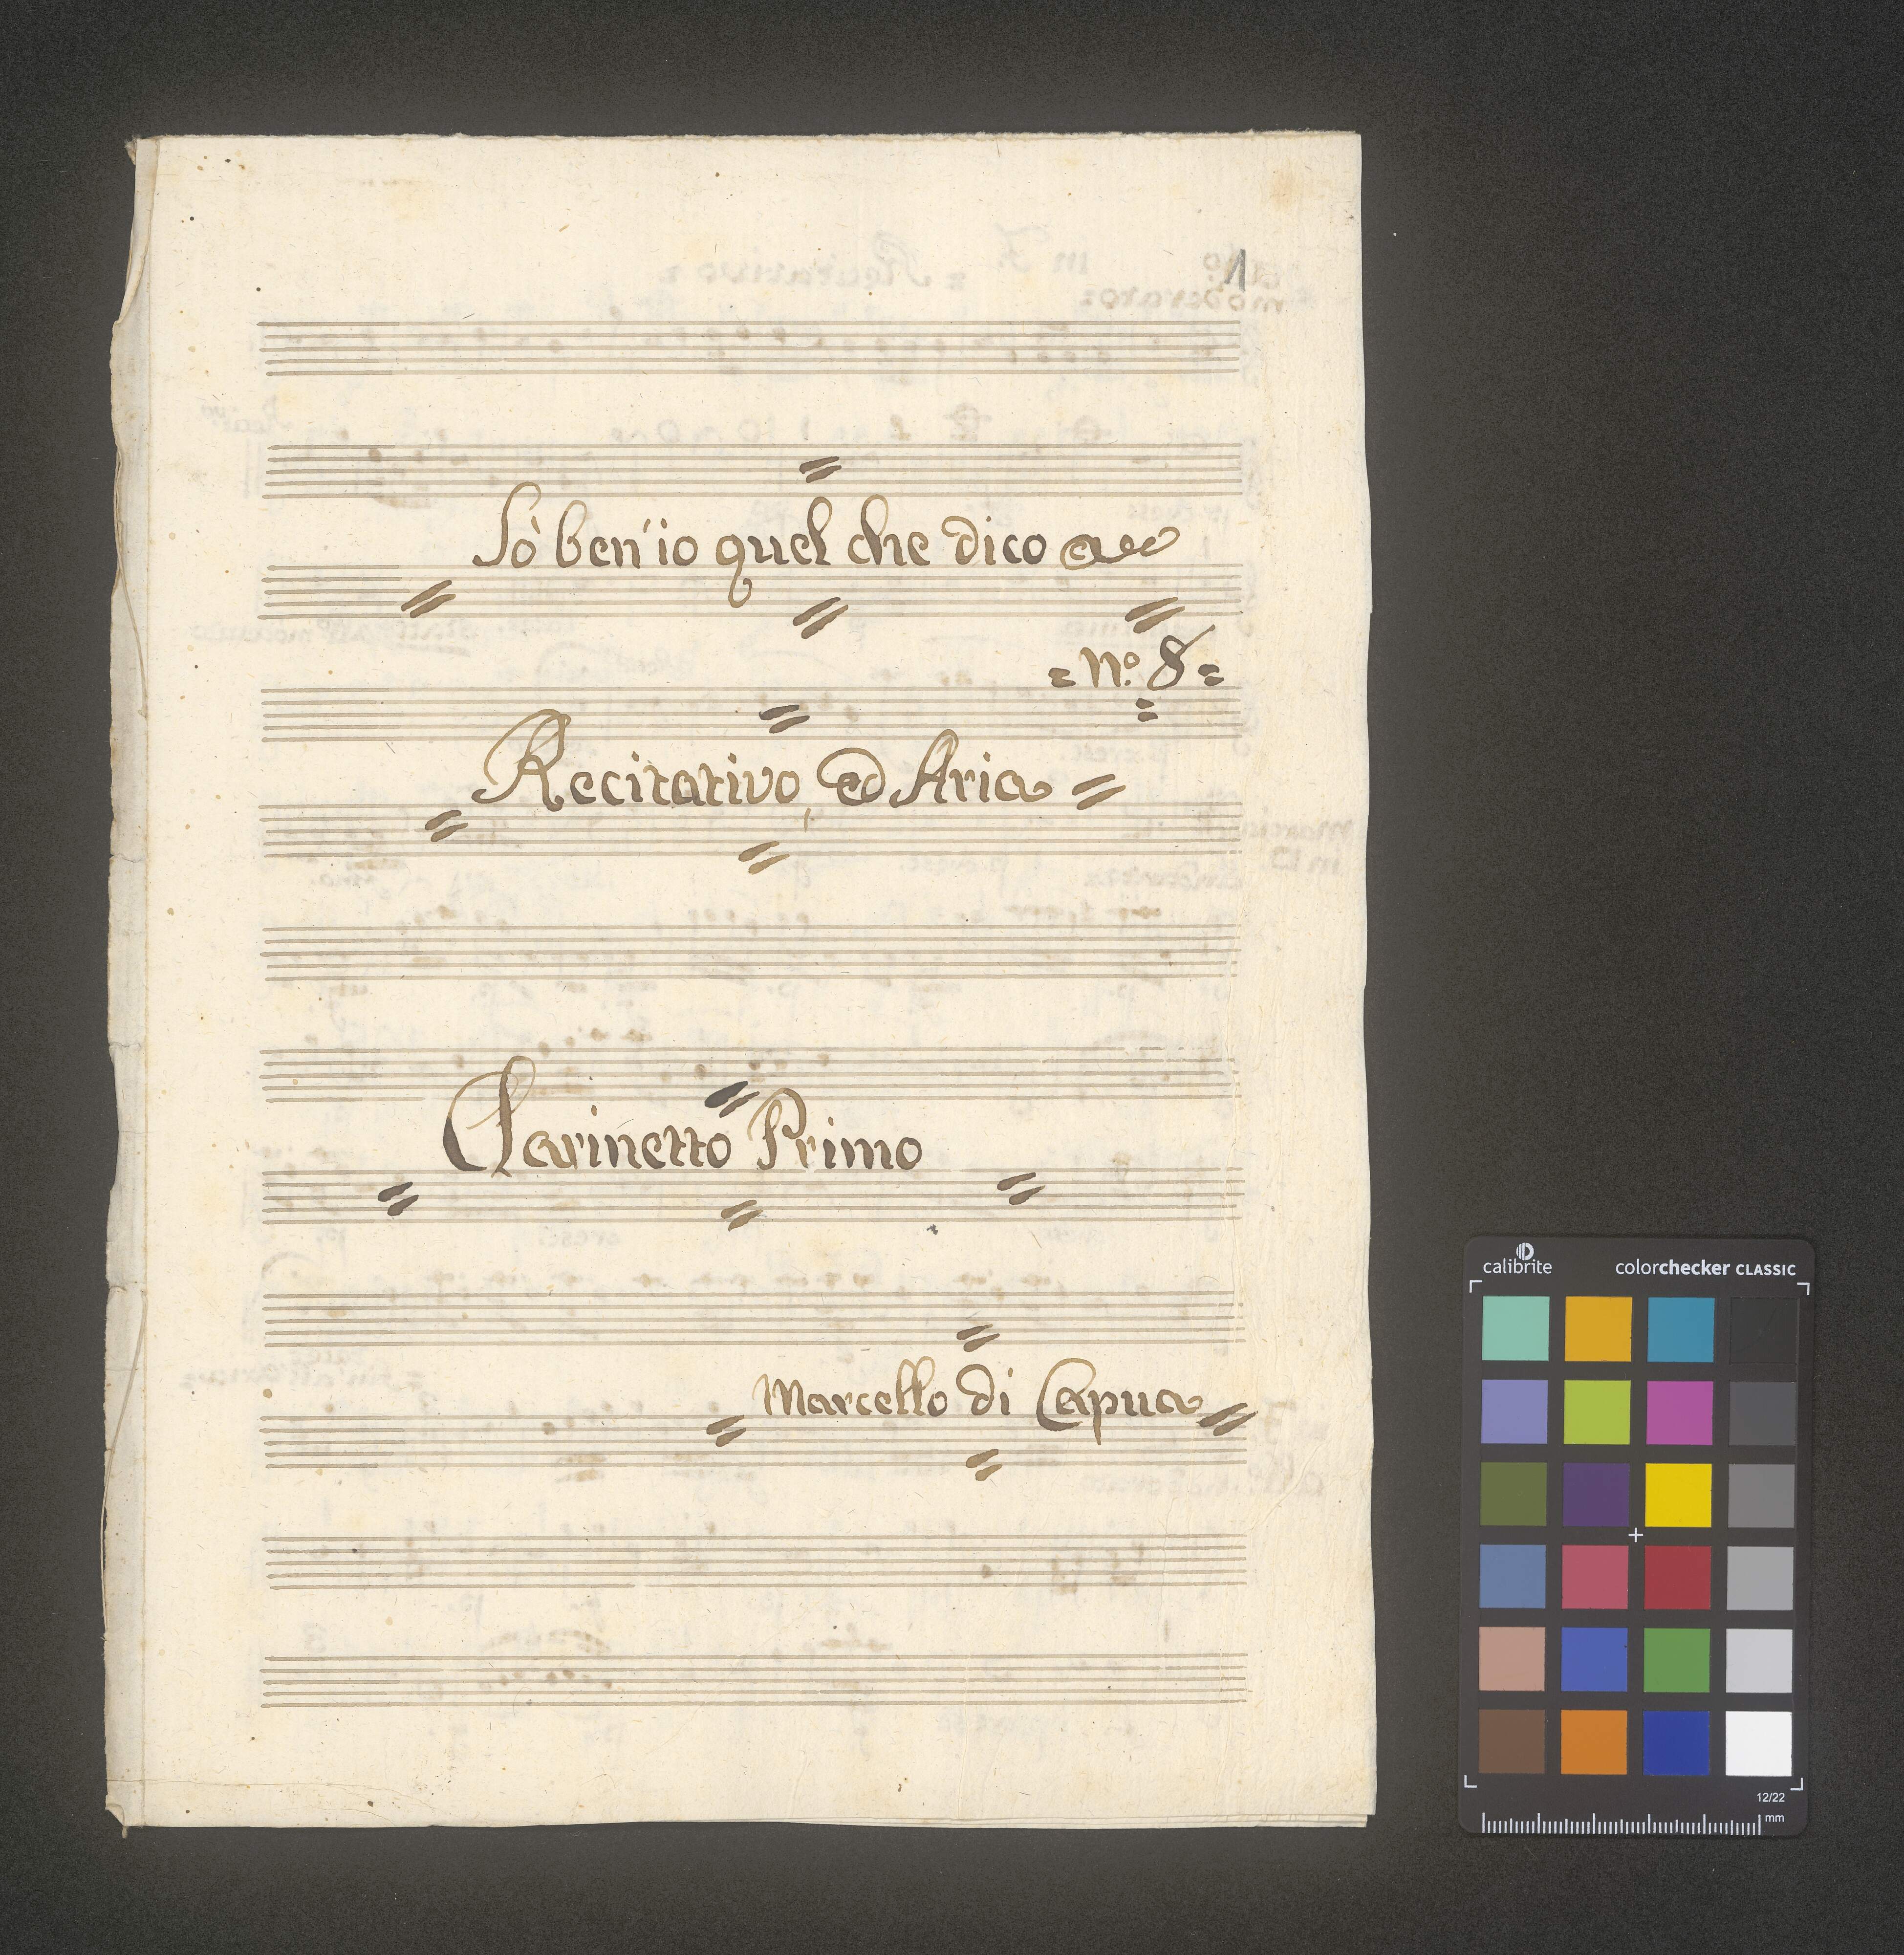 1
Sò ben'io quel che dico
= N.º 8 =
Recitativo, ed Aria
Clarinetto Primo
Marcello di Capua
calibrite colorchecker CLASSIC
12/22
mm